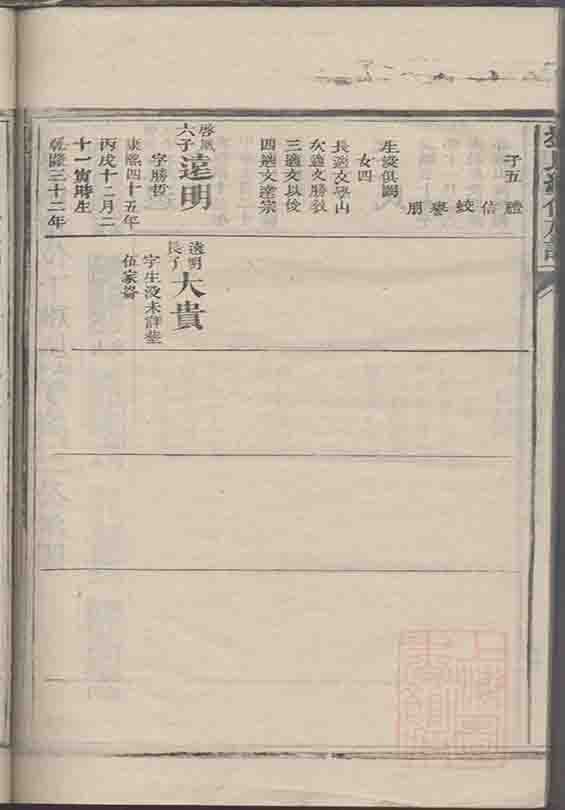 子五
禮
信
蛟
夔
朋
生没俱闕
女四
長適文學山
次適文勝教
三適文以俊
四適文達宗
六子
遠明
字勝哲
康熙四十五年
丙戌十二月二
十一寅時生
乾隆三十二年
遠明
長子
大貴
字生没未詳塟
伍家峇